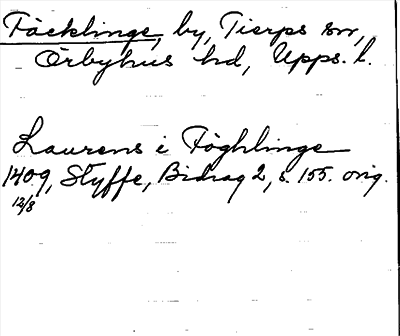 Fäcklinge, by, Tierps sn,
Örbyhus hd, Upps. l.
Laurens i Föghlinge
1409, Styffe, Bidrag 2, s. 155. orig.
12/8